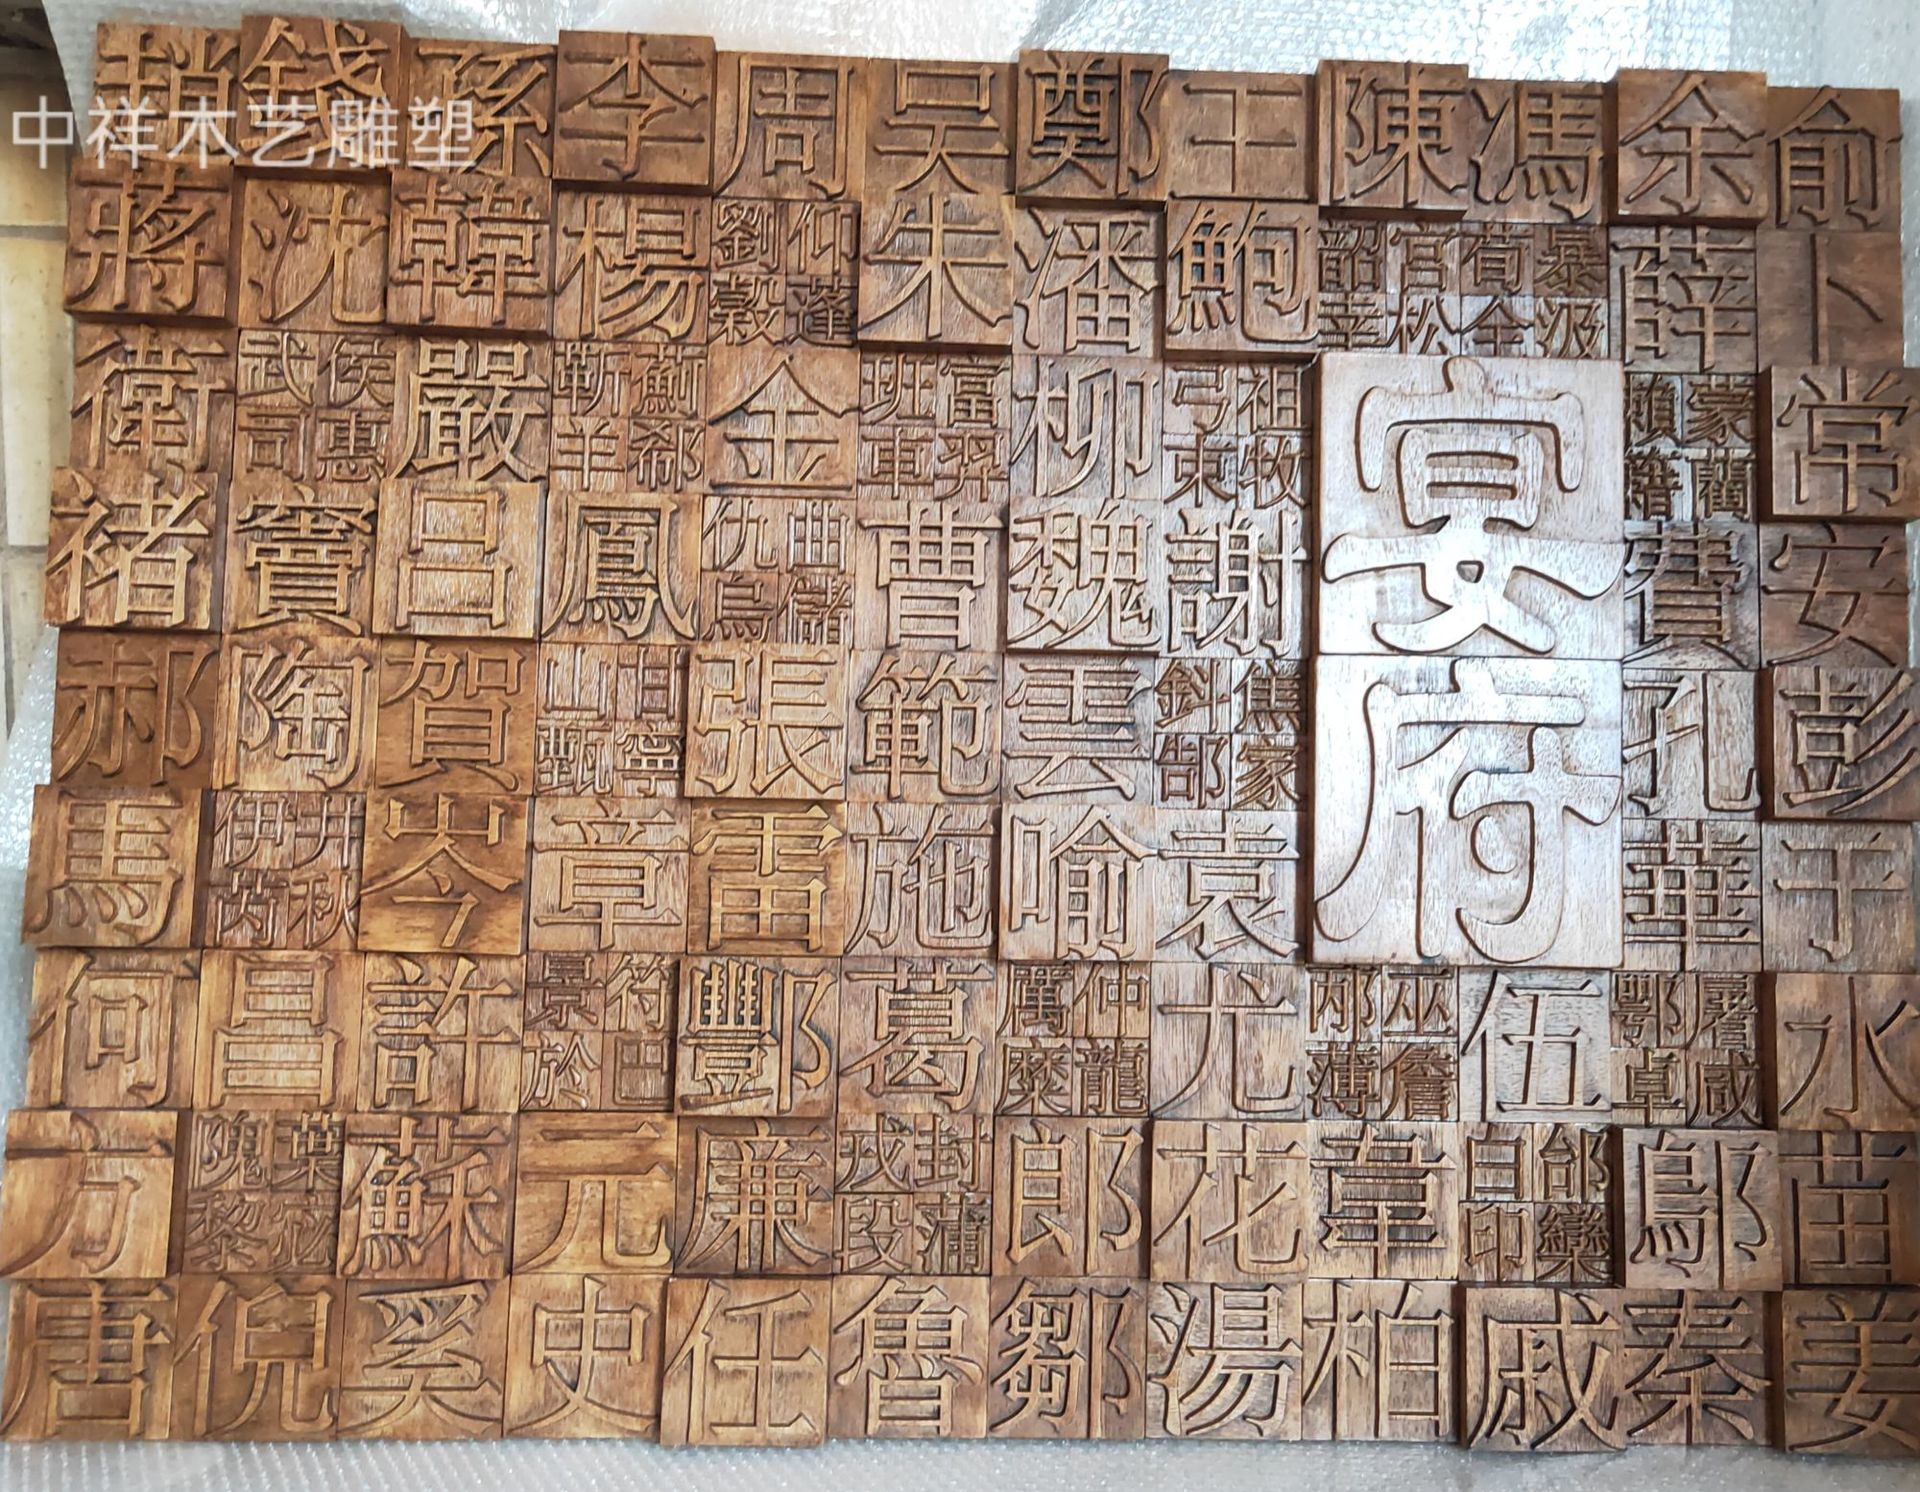 中祥木艺雕塑
趙 錢 孫 李 周 吴 鄭 王 陳 馮 余 俞
蔣 沈 韓 楊 劉 仰 朱 潘 鮑 韶 宫 荀 暴 薛 卜
穀 蓬 幸 松 全 汲
衛 武 侯 嚴 靳 薊 金 班 富 柳 弓 祖 宴 賴 蒙 常
司 惠 羊 郗 車 羿 束 牧 藉 藺
褚 竇 吕 鳳 仇 曲 曹 魏 謝 費 安
烏 儲
郝 陶 賀 山 甘 張 範 雲 鈄 焦 府 孔 彭
甄 寧 郜 家
馬 伊 井 岑 章 雷 施 喻 袁 華 于
芮 秋
何 昌 許 景 符 酆 葛 厲 仲 尤 邴 巫 伍 鄂 屠 水
於 巴 糜 龍 薄 詹 卓 咸
方 隗 葉 蘇 元 廉 戎 封 郎 花 韋 白 邰 鄔 苗
黎 宓 段 蒲 印 欒
唐 倪 奚 史 任 魯 鄒 湯 柏 戚 秦 姜